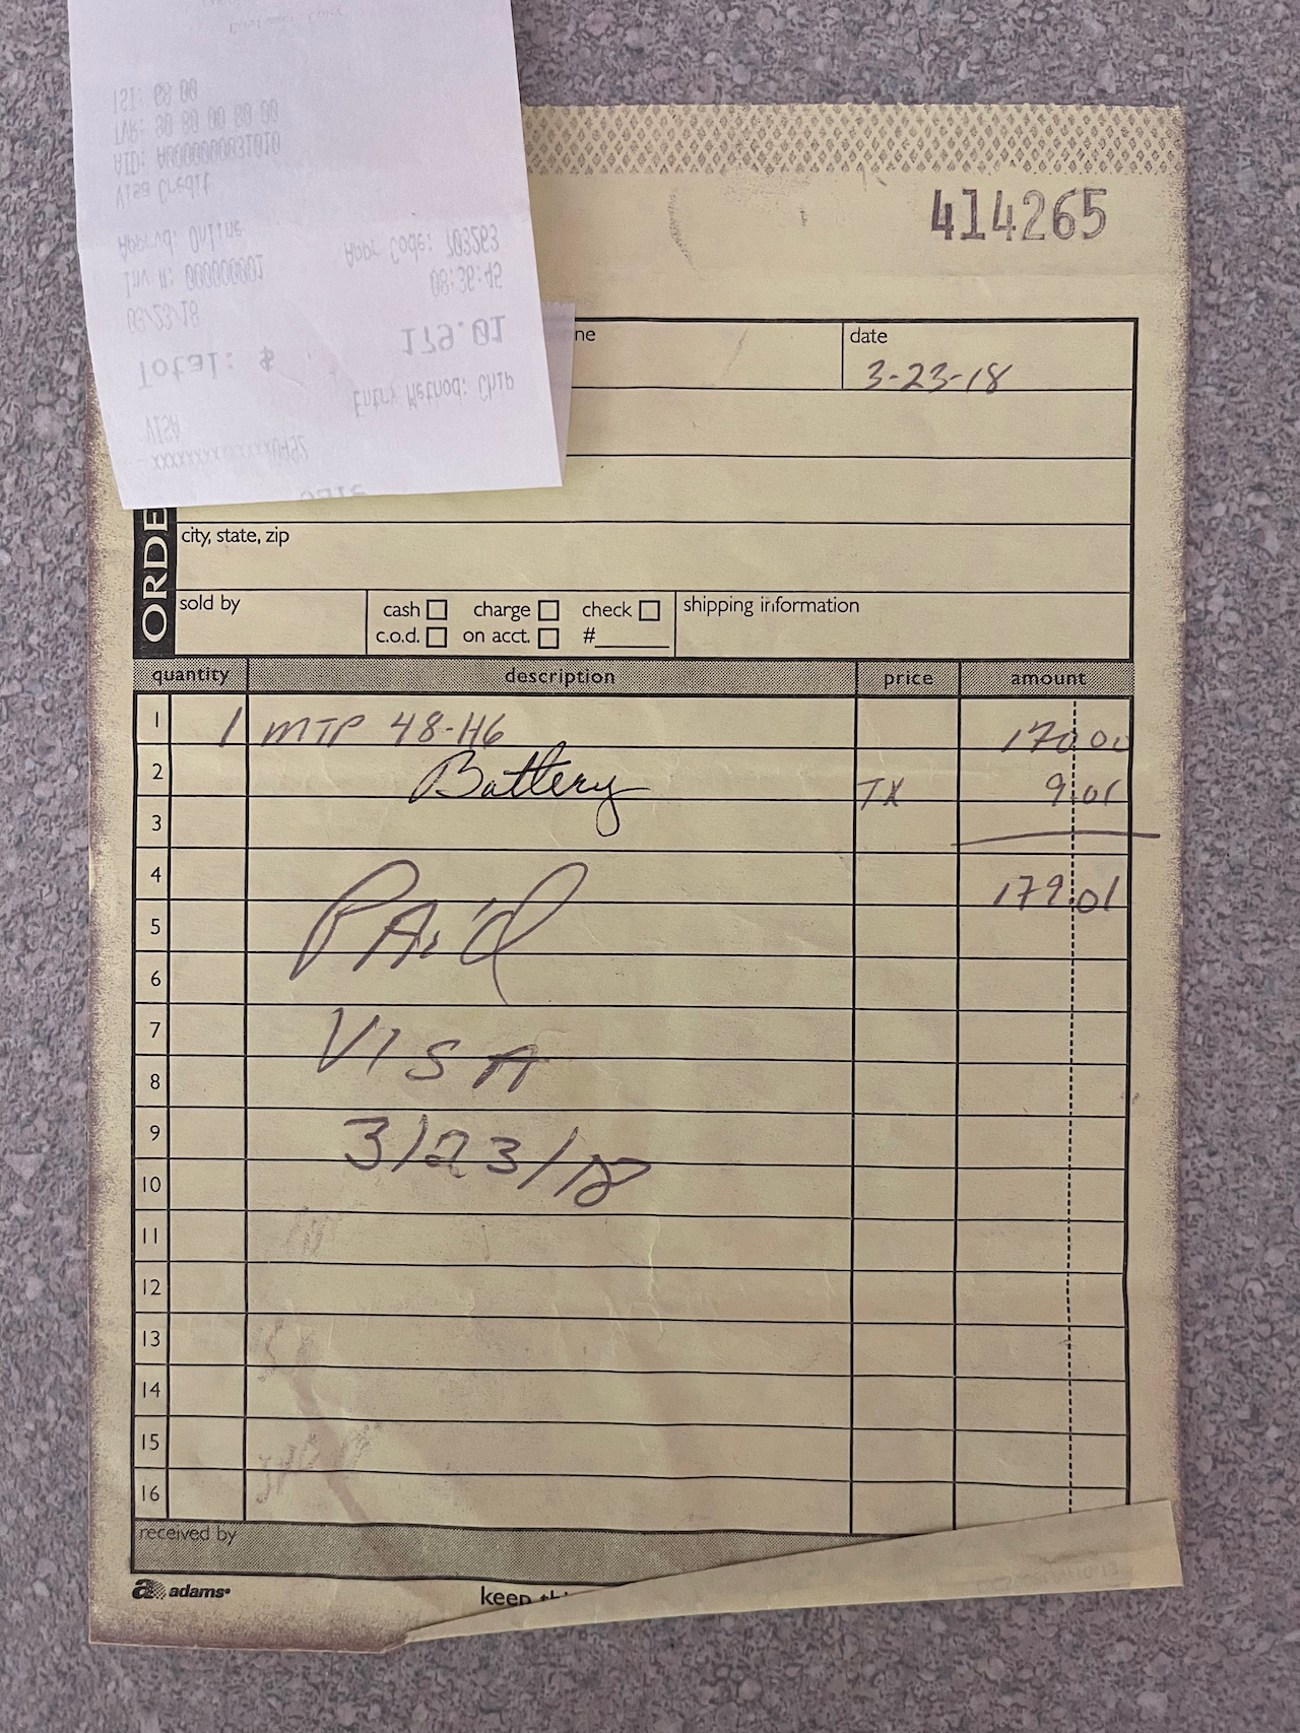 TSI: 68 00
TVR: 80 80 00 80 00
AID: A0000000031010
Visa Credit
Apprvd: Online Appr Code: 703263
Inv #: 000000001 08:36:45
03/23/18
Total: $ 179.01
Entry Method: Chip
VISA
XXXXXXXXXXXX0452
414265
ne
date
3-23-18
ORDE
city, state, zip
sold by
cash charge check
c.o.d. on acct. #
shipping information
quantity description price amount
1 1 MTP 48-H6 170.00
2 Battery TX 9.01
3
4 179.01
5 PAid
6
7 VISA
8
9 3/23/18
10
11
12
13
14
15
16
received by
adams
keep